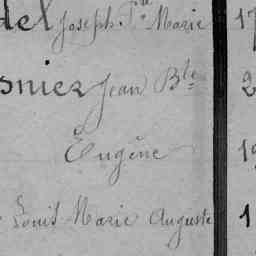 del Joseph Fu Marie 17
snier Jean Bte 2
Eugène 19
Louis Marie Auguste 1